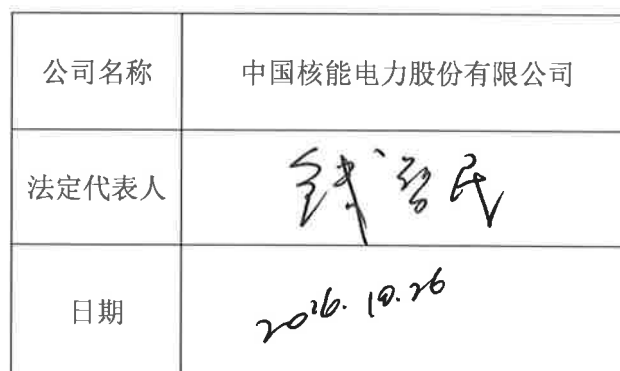 公司名称 中国核能电力股份有限公司
法定代表人 钱智民
日期 2016.10.26